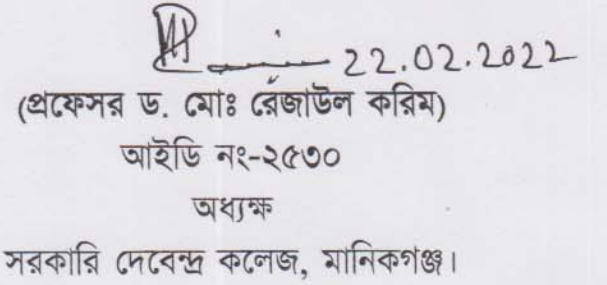 22.02.2022
(প্রফেসর ড. মোঃ রেজাউল করিম)
আইডি নং-২৫৩০
অধ্যক্ষ
সরকারি দেবেন্দ্র কলেজ, মানিকগঞ্জ।